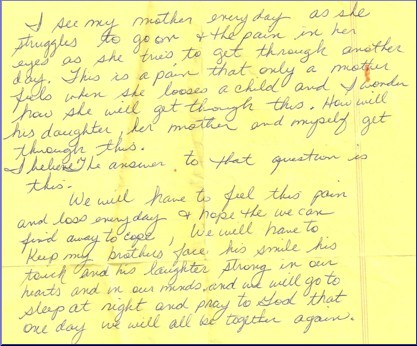 I see my mother everyday as she
struggles to go on & the pain in her
eyes as she tries to get through another
day. This is a pain that only a mother
feels when she looses a child and I wonder
how she will get though this. How will
his daughter, her mother and myself get
through this.
I believe The answer to that question is
this.
We will have to feel this pain
and loss everyday & hope the we can
find away to cope, We will have to
Keep my brothers face his smile his
touch and his laughter strong in our
hearts and in our minds and we will go to
sleep at night and pray to God that
one day we will all be together again.